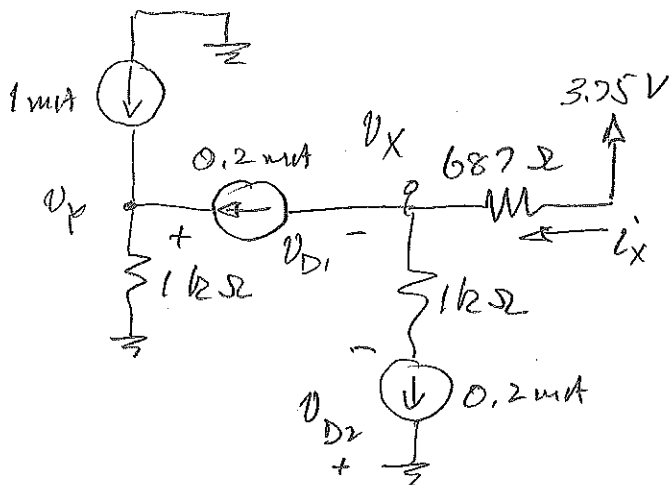 1 mA
3.75 V
0.2 mA
v_X
687 Ω
v_Y
+
v_D1
-
i_X
1 kΩ
1 kΩ
-
v_D2
0.2 mA
+